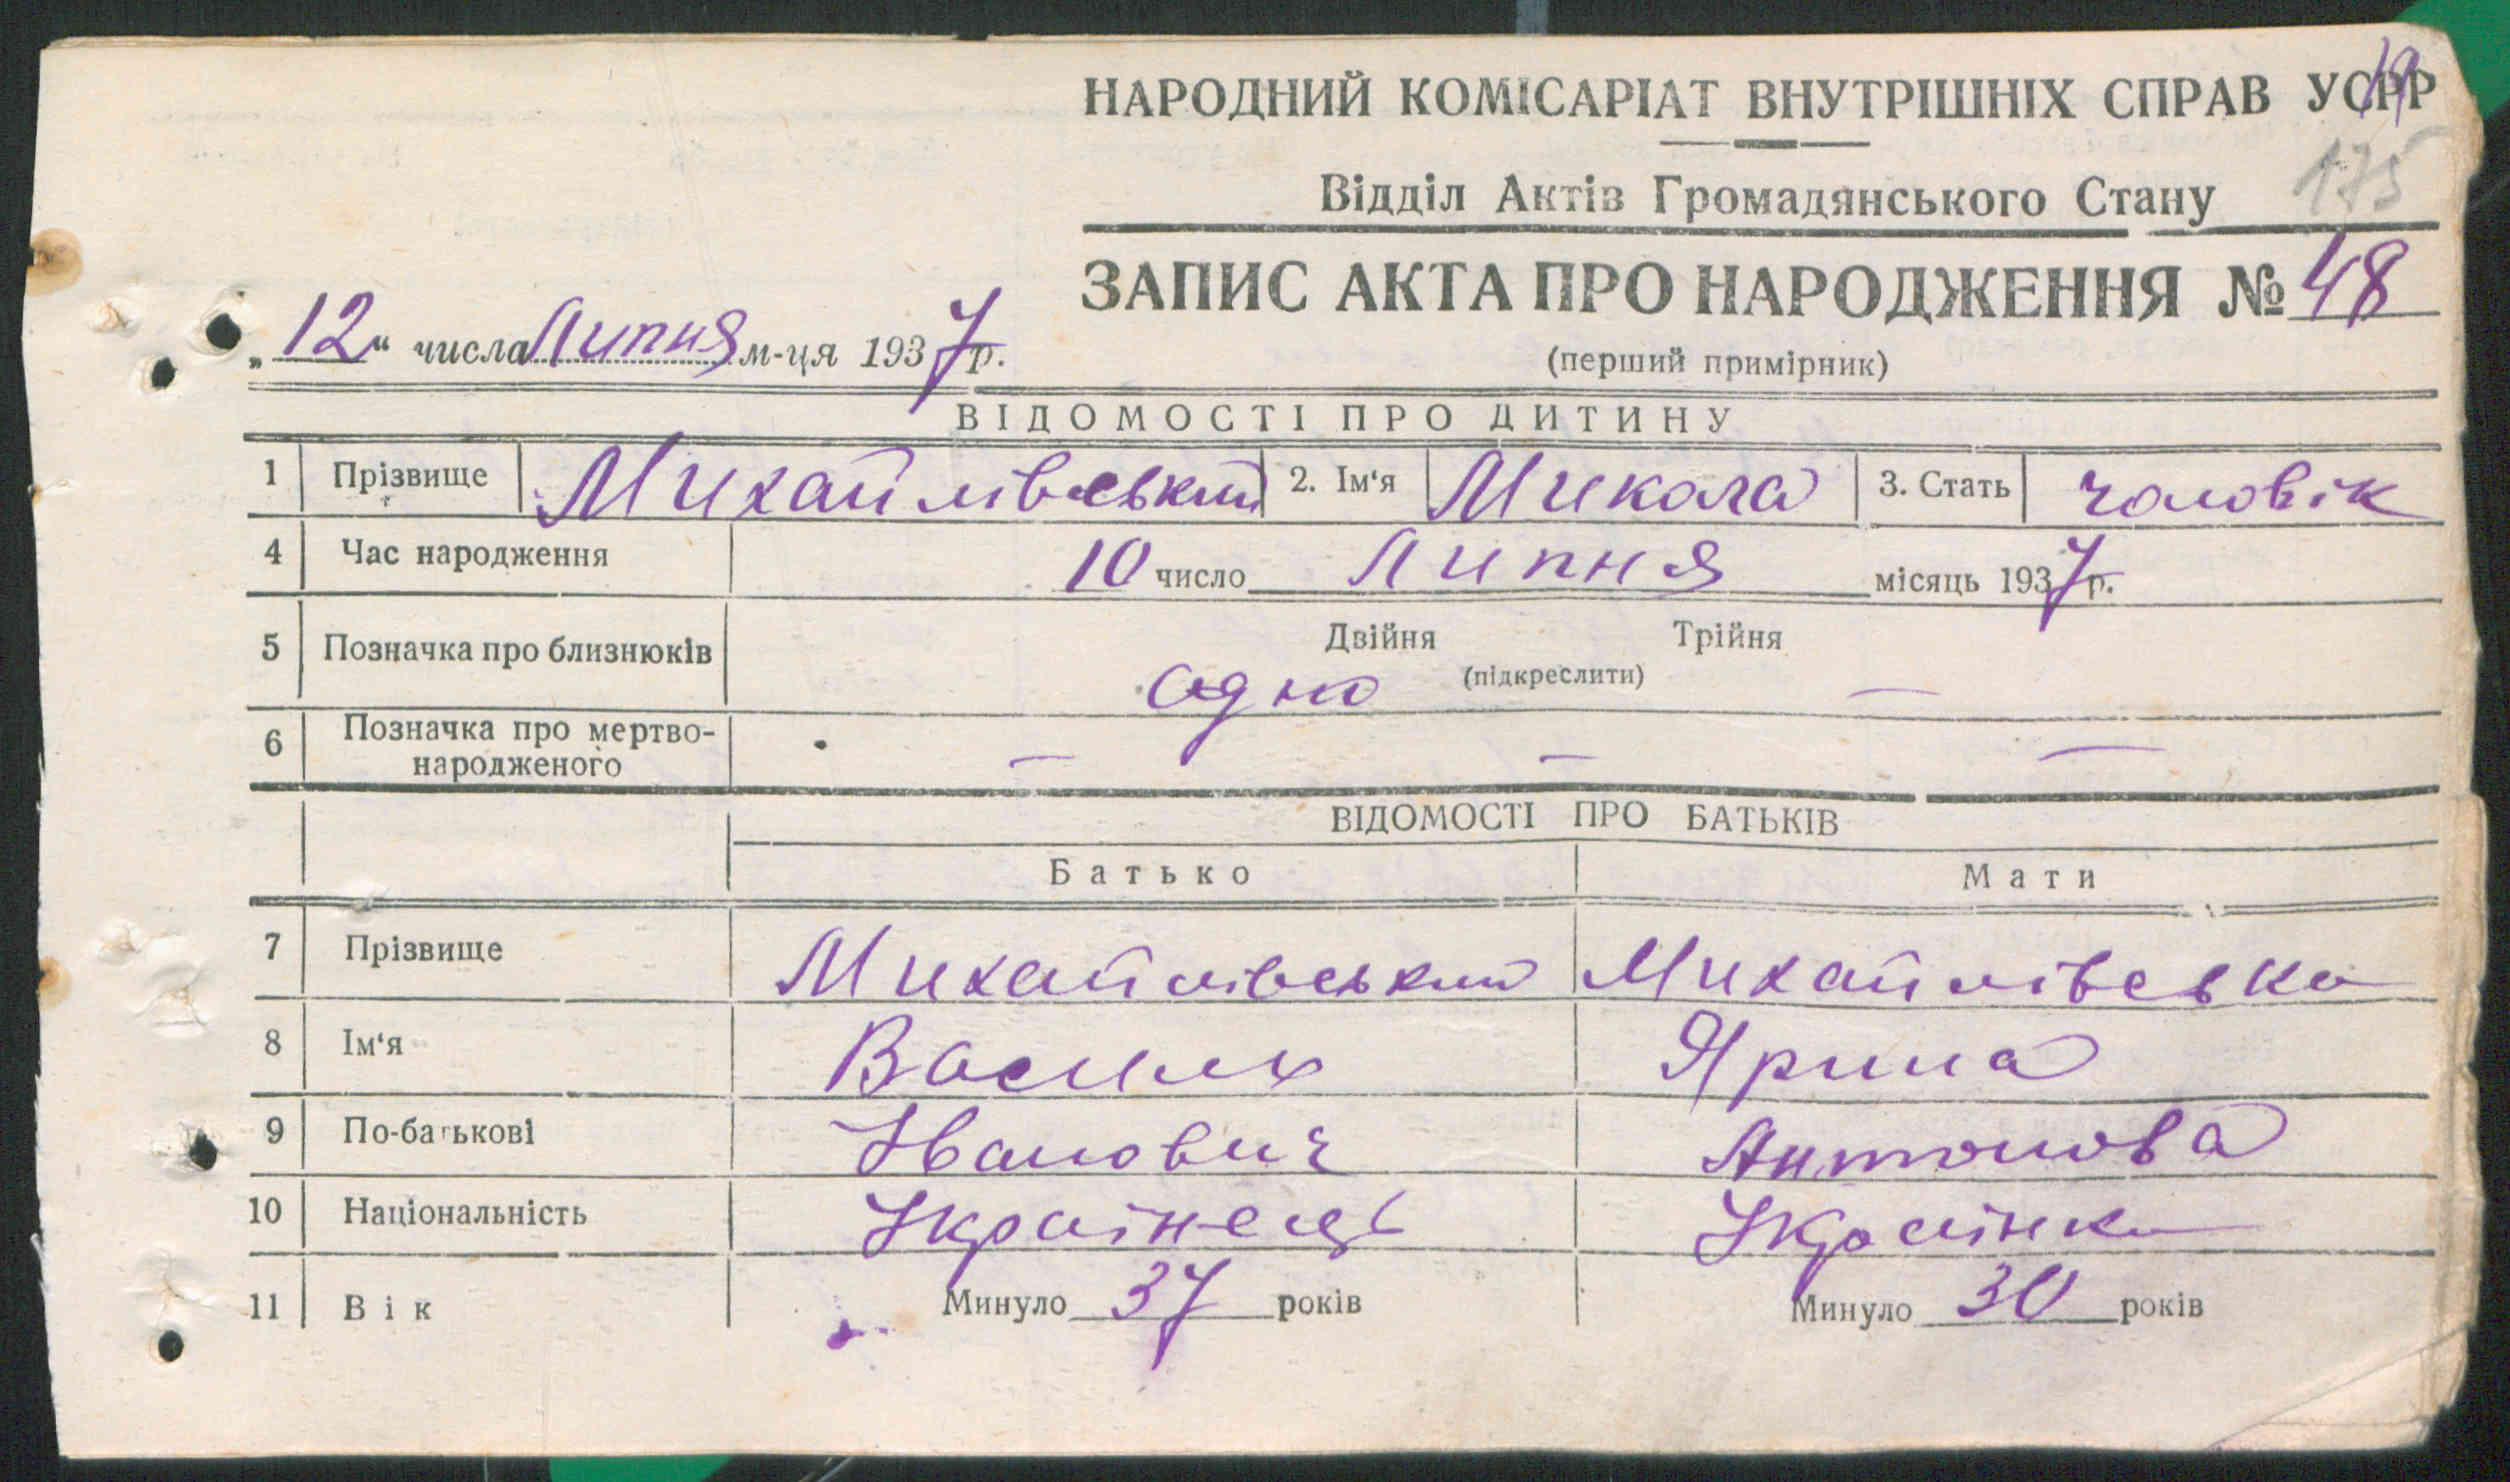 НАРОДНИЙ КОМІСАРІАТ ВНУТРІШНІХ СПРАВ УСРР
19
175
Відділ Актів Громадянського Стану
ЗАПИС АКТА ПРО НАРОДЖЕННЯ № 48
„12“ числа Липня м-ця 1937 р.
(перший примірник)
ВІДОМОСТІ ПРО ДИТИНУ
1 Прізвище Михайлівський 2. Ім‘я Микола 3. Стать чоловік
4 Час народження 10 число Липня місяць 1937 р.
5 Позначка про близнюків Двійня Трійня
(підкреслити)
одно —
6 Позначка про мертво-
народженого — — —
ВІДОМОСТІ ПРО БАТЬКІВ
Батько Мати
7 Прізвище Михайлівський Михайлівська
8 Ім‘я Василь Ярина
9 По-батькові Іванович Антонова
10 Національність Українець Українка
11 Вік Минуло 37 років Минуло 30 років